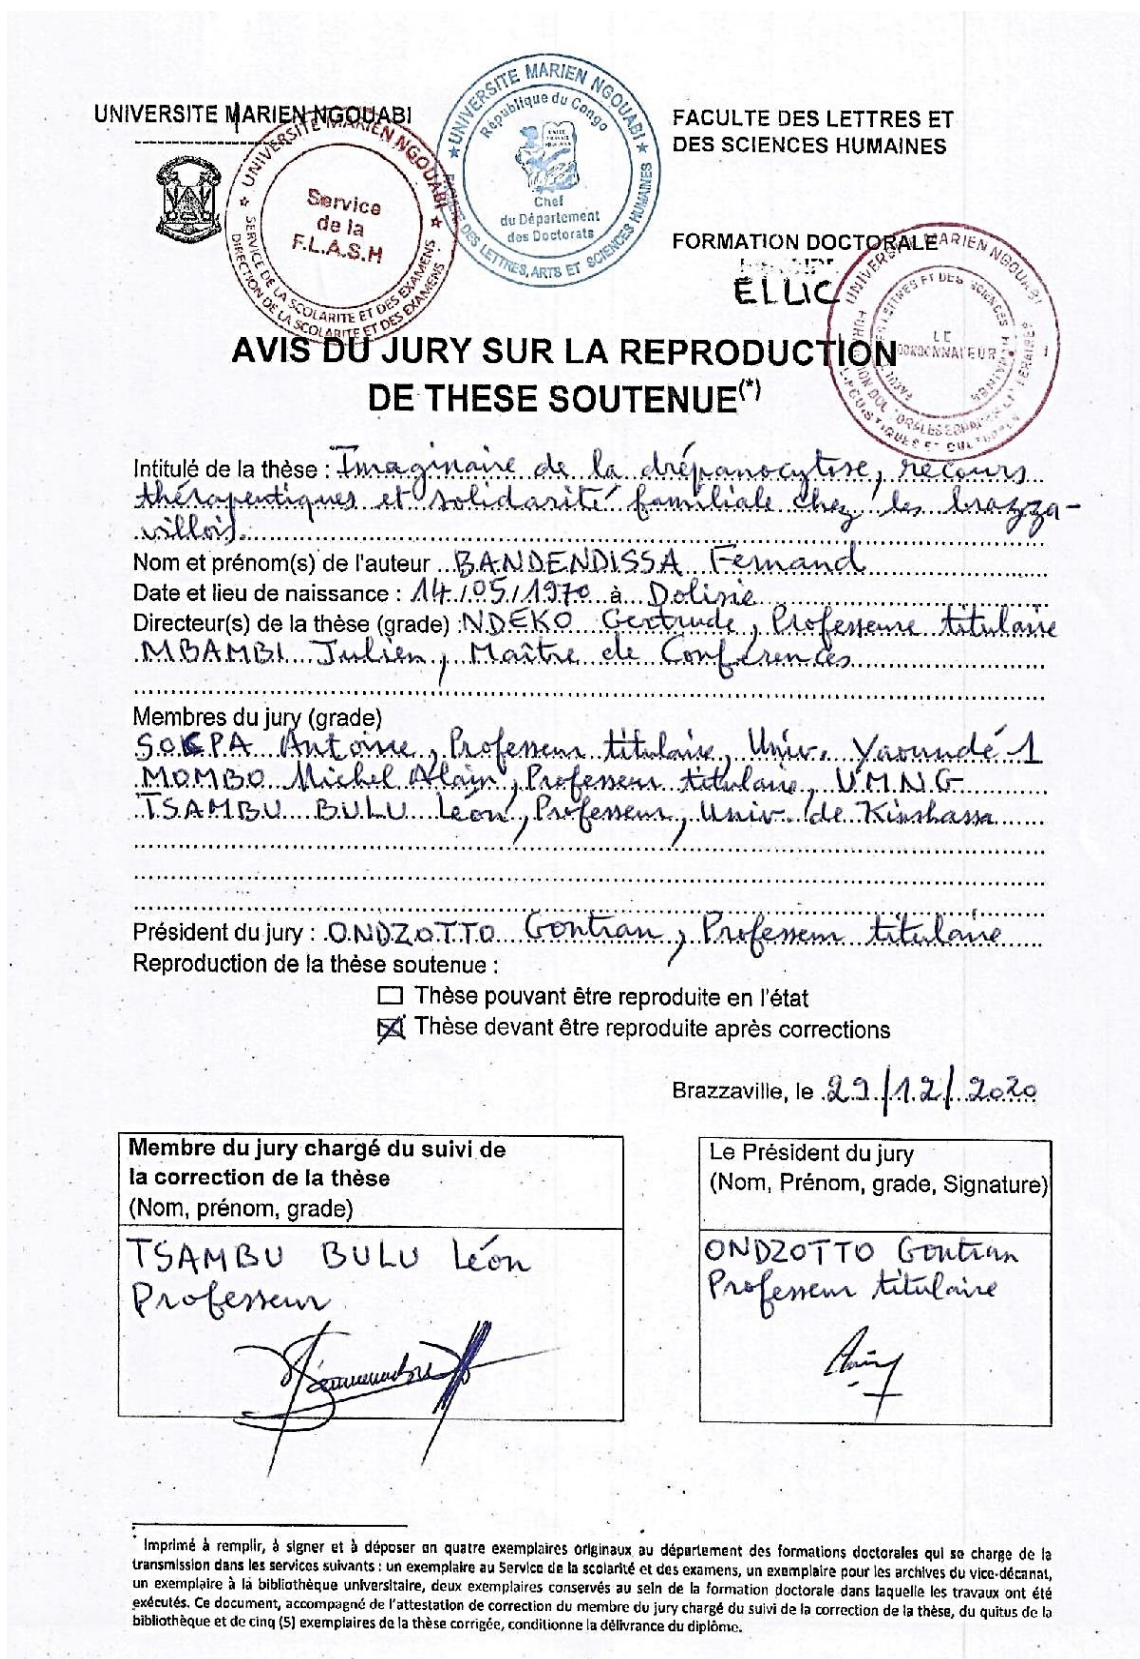 UNIVERSITE MARIEN NGOUABI
FACULTE DES LETTRES ET
DES SCIENCES HUMAINES
UNIVERSITE MARIEN NGOUABI
Service
de la
F.L.A.S.H
SERVICE DE LA SCOLARITE ET DES EXAMENS
DIRECTION DE LA SCOLARITE ET DES EXAMENS
UNIVERSITE MARIEN NGOUABI
République du Congo
Chef
du Département
des Doctorats
DES LETTRES, ARTS ET SCIENCES HUMAINES
FORMATION DOCTORALE
ELLIC
UNIVERSITE MARIEN NGOUABI
LE
AVIS DU JURY SUR LA REPRODUCTION
DE THESE SOUTENUE(*)
Intitulé de la thèse : Imaginaire de la drépanocytose, recours
thérapeutiques et solidarité familiale chez les brazza-
villois.
Nom et prénom(s) de l'auteur BANDENDISSA Fernand
Date et lieu de naissance : 14/05/1970 à Dolisie
Directeur(s) de la thèse (grade) : NDEKO Gertrude, Professeure titulaire
MBAMBI Julien, Maître de Conférences
Membres du jury (grade)
SOCPA Antoine, Professeur titulaire, Univ. Yaoundé 1
MOMBO Michel Alain, Professeur titulaire, UMNG
TSAMBU BULU Léon, Professeur, Univ. de Kinshasa
Président du jury : ONDZOTTO Gontran, Professeur titulaire
Reproduction de la thèse soutenue :
Thèse pouvant être reproduite en l'état
Thèse devant être reproduite après corrections
Brazzaville, le 29/12/2020
Membre du jury chargé du suivi de
la correction de la thèse
(Nom, prénom, grade)
TSAMBU BULU Léon
Professeur
Le Président du jury
(Nom, Prénom, grade, Signature)
ONDZOTTO Gontran
Professeur titulaire
* Imprimé à remplir, à signer et à déposer en quatre exemplaires originaux au département des formations doctorales qui se charge de la
transmission dans les services suivants : un exemplaire au Service de la scolarité et des examens, un exemplaire pour les archives du vice-décanat,
un exemplaire à la bibliothèque universitaire, deux exemplaires conservés au sein de la formation doctorale dans laquelle les travaux ont été
exécutés. Ce document, accompagné de l'attestation de correction du membre du jury chargé du suivi de la correction de la thèse, du quitus de la
bibliothèque et de cinq (5) exemplaires de la thèse corrigée, conditionne la délivrance du diplôme.